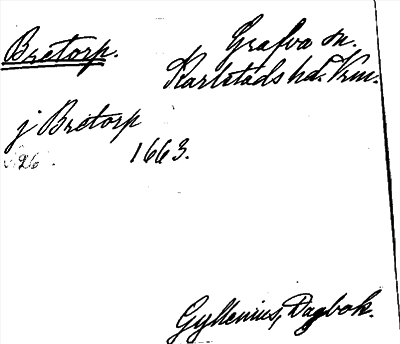 Bretorp.
Grafva sn.
Karlstads hd. Vrm.
j Bretorp
s. 26. 1663.
Gyllenius, Dagbok.